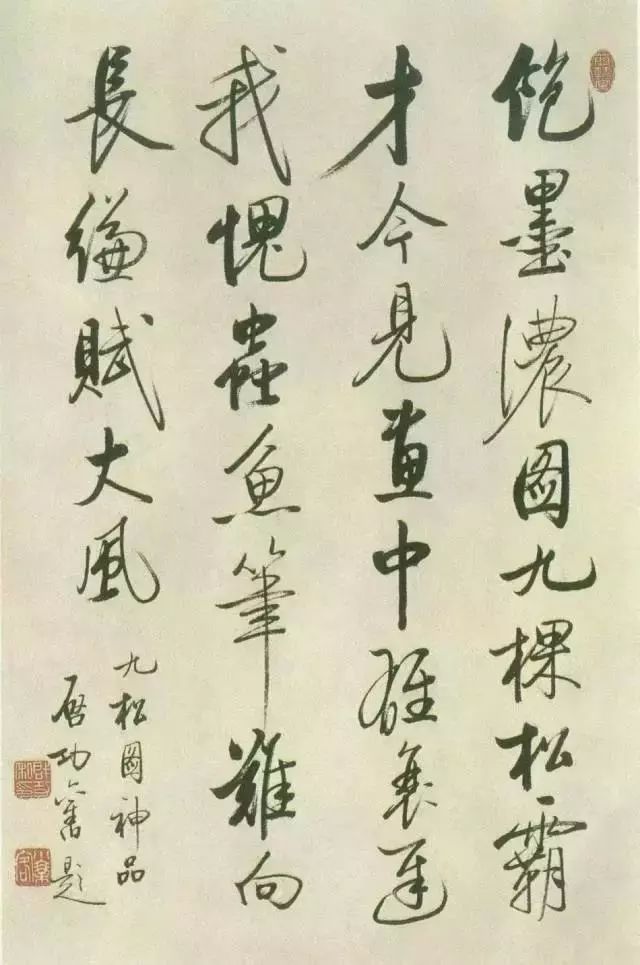 飽墨濃圖九棵松霸
才今見畫中雄衰遲
我愧蟲魚筆難向
長縑賦大風
九松圖神品
啓功舊題